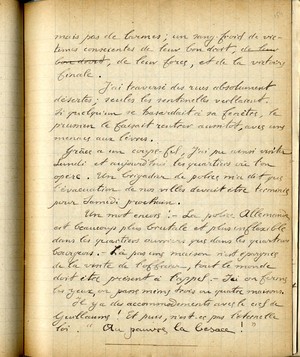 mais pas de larmes ; un sang-froid de vic-
times conscientes de leur bon droit, de leur
bon droit, de leur force, et de la victoire
finale.
J'ai traversé des rues absolument
désertes ; seules les sentinelles veillaient.
Si quelqu'un se hasardait à sa fenêtre, le
prussien le faisait rentrer aussitôt, avec une
menace aux lèvres.
Grâce à un coupe-fil, j'ai pu ainsi visiter
lundi et aujourd'hui les quartiers où l'on
opère. Un brigadier de police m'a dit que
l'évacuation de nos villes devait être terminée
pour samedi prochain.
Un mot encore : - La police Allemande
est beaucoup plus brutale et plus inflexible
dans les quartiers ouvriers que dans les quartiers
bourgeois. - Là pas une maison n'est épargnée
de la visite de l'officier, tout le monde
doit être présent à l'appel - Ici on ferme
les yeux, on passe même trois ou quatre maisons.
Il y a des accommodements avec le ciel de
Guillaume ! Et puis, n'est-ce pas l'éternelle
loi : "Au pauvre la besace !"